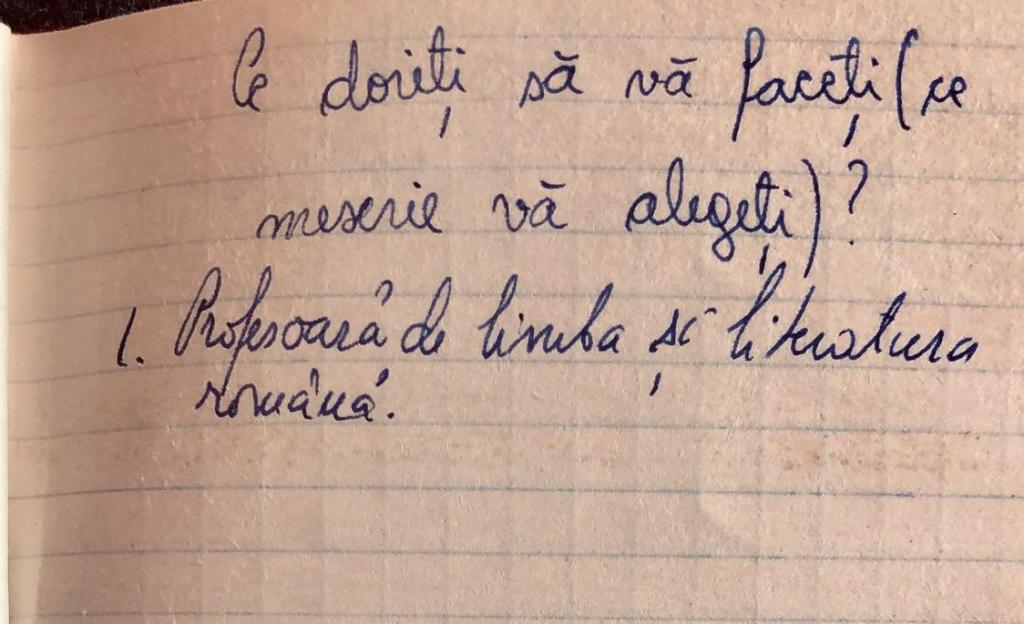 Ce doriți să vă faceți (ce
meserie vă alegeți)?
1. Profesoară de limba și literatura
română.